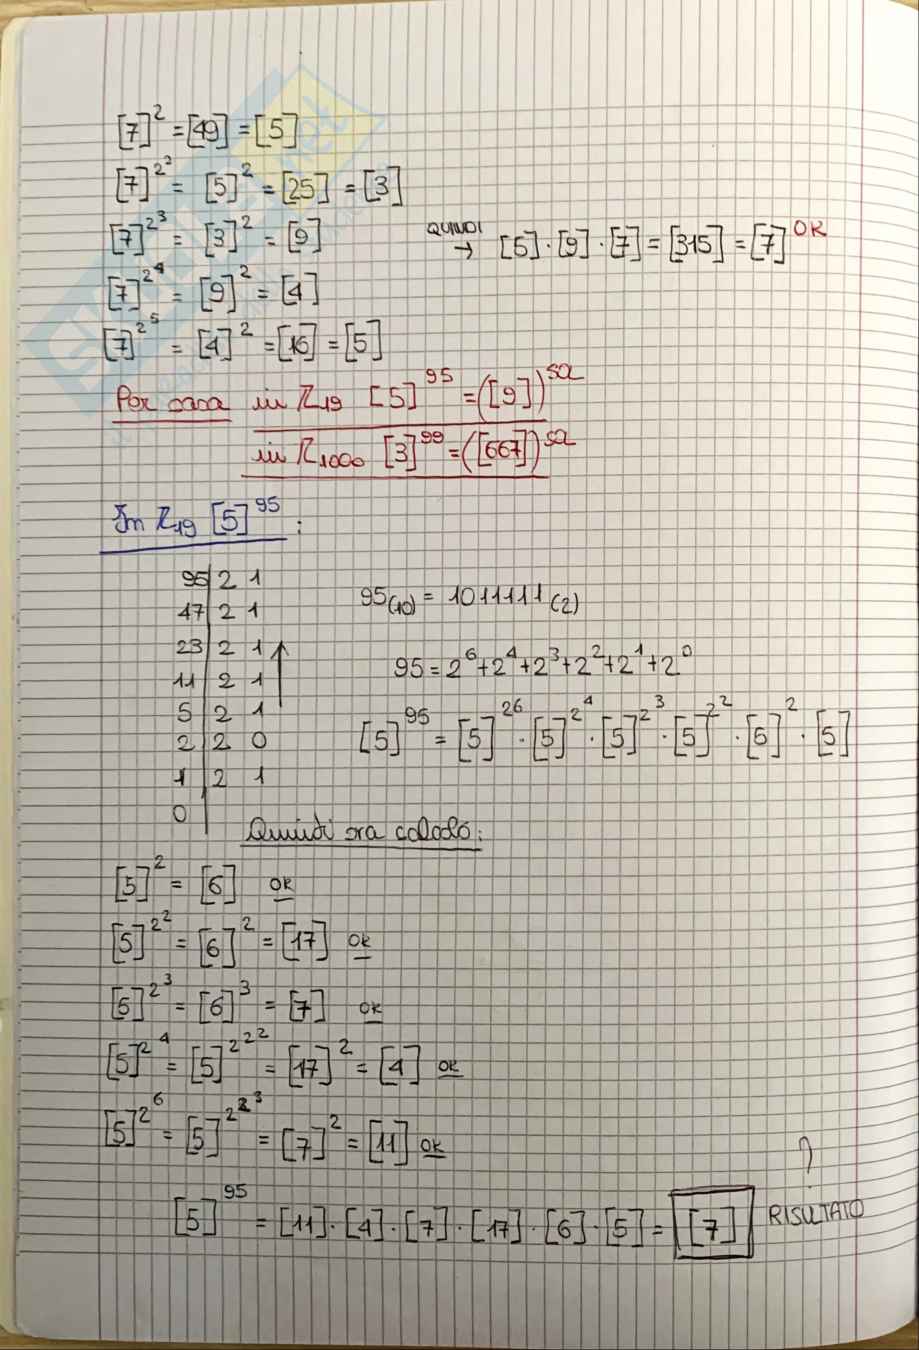 [7]^2 = [49] = [5]
[7]^2^2 = [5]^2 = [25] = [3]
[7]^2^3 = [3]^2 = [9]
QUINDI → [5]·[9]·[7] = [315] = [7] OK
[7]^2^4 = [9]^2 = [4]
[7]^2^5 = [4]^2 = [16] = [5]
Per casa in Z_19 [5]^95 = ([9])^sol
in Z_1000 [3]^99 = ([667])^sol
In Z_19 [5]^95 :
95 | 2 1
47 | 2 1
23 | 2 1
11 | 2 1
5 | 2 1
2 | 2 0
1 | 2 1
0
95(10) = 1011111(2)
95 = 2^6 + 2^4 + 2^3 + 2^2 + 2^1 + 2^0
[5]^95 = [5]^26 · [5]^2^4 · [5]^2^3 · [5]^2^2 · [5]^2 · [5]
Quindi ora calcolo:
[5]^2 = [6] OK
[5]^2^2 = [6]^2 = [17] OK
[5]^2^3 = [6]^3 = [7] OK
[5]^2^4 = [5]^2^2^2 = [17]^2 = [4] OK
[5]^2^6 = [5]^2^2^3 = [7]^2 = [11] OK
[5]^95 = [11]·[4]·[7]·[17]·[6]·[5] = [7] RISULTATO ?